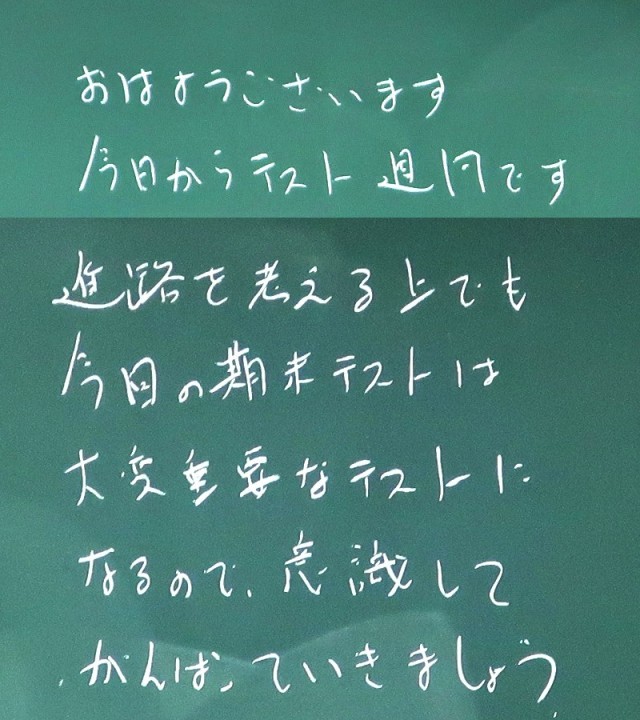 おはようございます
今日からテスト週間です
進路を考える上でも
今回の期末テストは
大変重要なテストに
なるので、意識して
がんばっていきましょう